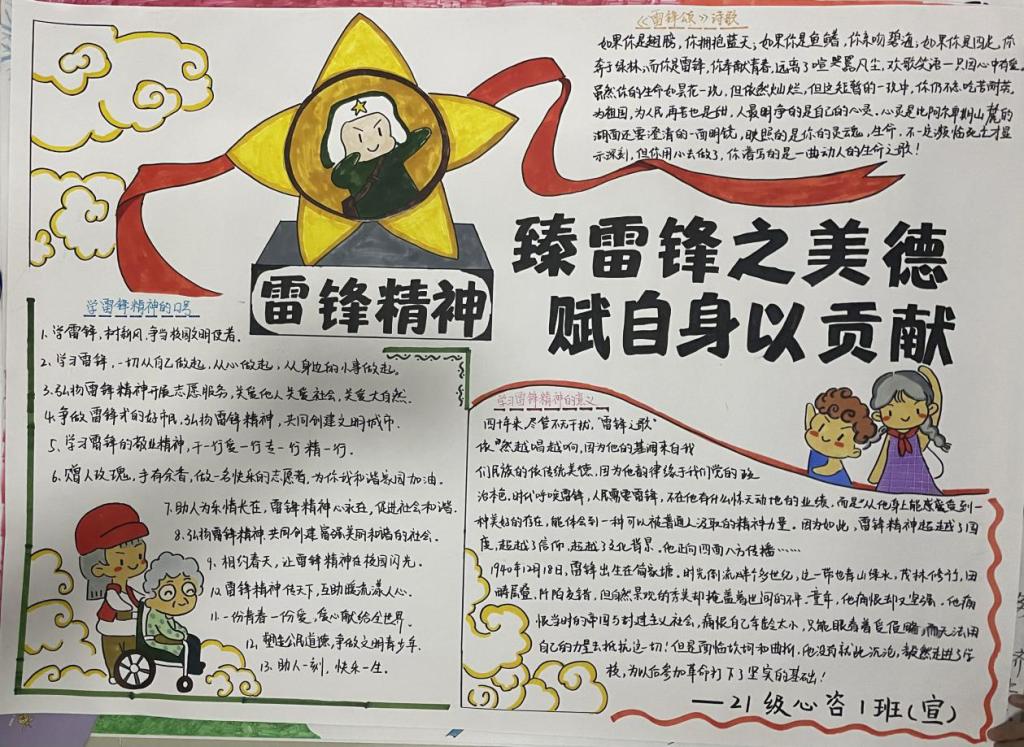 《雷锋颂》诗歌
如果你是翅膀，你拥抱蓝天；如果你是鱼鳍，你亲吻碧海；如果你是四足，你
奔于绿林；而你是雷锋，你奉献青春，远离了喧哭嚣凡尘，欢歌笑语一只因心中有爱。
虽然你的生命如昙花一现，但依然灿烂，但这短暂的一段中，你仍不怕吃苦耐劳。
为祖国，为人民再苦也是甜，人最明争的是自己的心灵。心灵是比阿尔卑斯山麓的
湖面还要澄清的一面明镜，映照的是你的灵魂，生命，不一定濒临死亡才显
示深刻，但你用心去做了，你谱写的是一曲动人的生命之歌！
臻雷锋之美德
赋自身以贡献
雷锋精神
学雷锋精神的口号
1、学雷锋，树新风，争当校园文明使者。
2、学习雷锋，一切从自己做起，从心做起，从身边的小事做起。
3、弘扬雷锋精神开展志愿服务，关爱他人关爱社会，关爱大自然。
4、争做雷锋式的好市民，弘扬雷锋精神，共同创建文明城市。
5、学习雷锋的敬业精神，干一行爱一行专一行精一行。
6、赠人玫瑰，手有余香，做一名快乐的志愿者，为你我和谐家园加油。
7、助人为乐情长在，雷锋精神心永在，促进社会和谐。
8、弘扬雷锋精神，共同创建富强美丽和谐的社会。
9、相约春天，让雷锋精神在校园闪光。
10、雷锋精神传天下，互助暖流满人心。
11、一份青春一份爱，爱心献给全世界。
12、塑造公民道德，争做文明青少年。
13、助人一刻，快乐一生。
学习雷锋精神的意义
四十年来，尽管不无干扰，“雷锋之歌”
依然越唱越响，因为他的基调来自我
们民族的优传统美德，因为他韵律缘于我们党的政
治本色，时代呼唤雷锋，人民需要雷锋，不在他有什么惊天动地的业绩，而是“从他身上能感觉受到一
种美好的存在，能体会到一种可以被普通人汲取的精神力量。因为如此，雷锋精神超越了国
度，超越了信仰，超越了文化背景。他正向四面八方传播……
1940年12月18日，雷锋出生在简家塘。时光倒流半个多世纪，这一带也青山绿水，茂林修竹，田
畴层叠，阡陌交错，但自然景观的秀美却掩盖着世间的不平。童年，他痛恨却又坚强。他痛
恨当时的帝国与封建主义社会，痛恨自己年龄太小，只能眼看着受侵略，而无法用
自己的力量去抵抗这一切！但是面临坎坷和曲折，他没有就此沉沦，毅然走进了学
校，为以后参加革命打下了坚实的基础！
——21级心咨1班（宣）